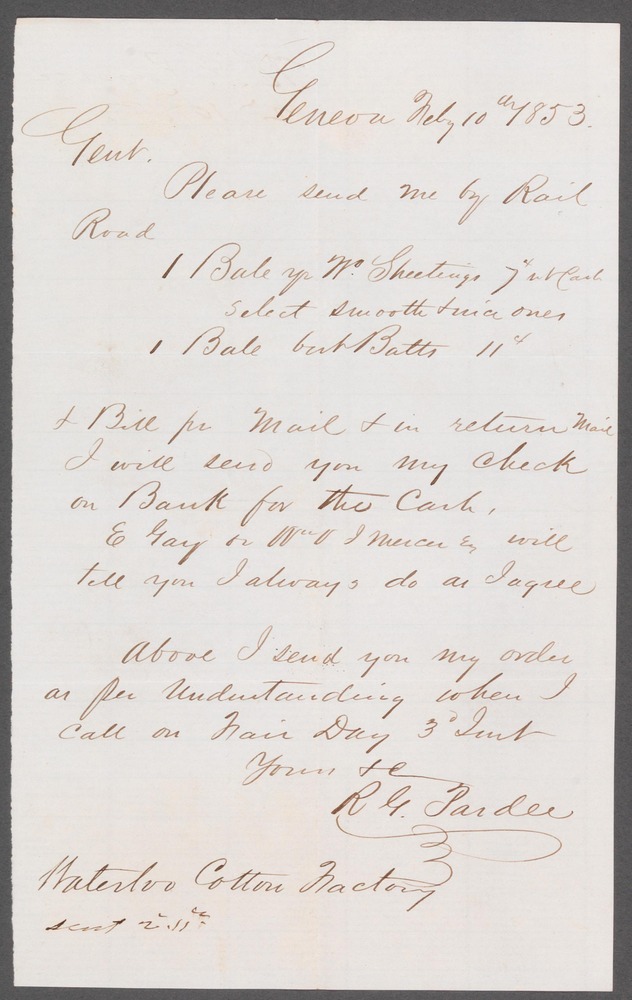 Geneva Feby 10th 1853.
Gent.
Please send me by Rail
Road
1 Bale Sheetings 7 nt Cash
Select smooth & nice ones
1 Bale Batts 11
& Bill pr Mail & in return Mail
I will send you my Check
on Bank for the Cash,
E Gay or Mercer Esq will
tell you I always do as I agree
Above I send you my order
as Per Understanding when I
Call on Fair Day 3d Inst
Yours &c
R G. Pardee
Waterloo Cotton Factory
sent 2 11